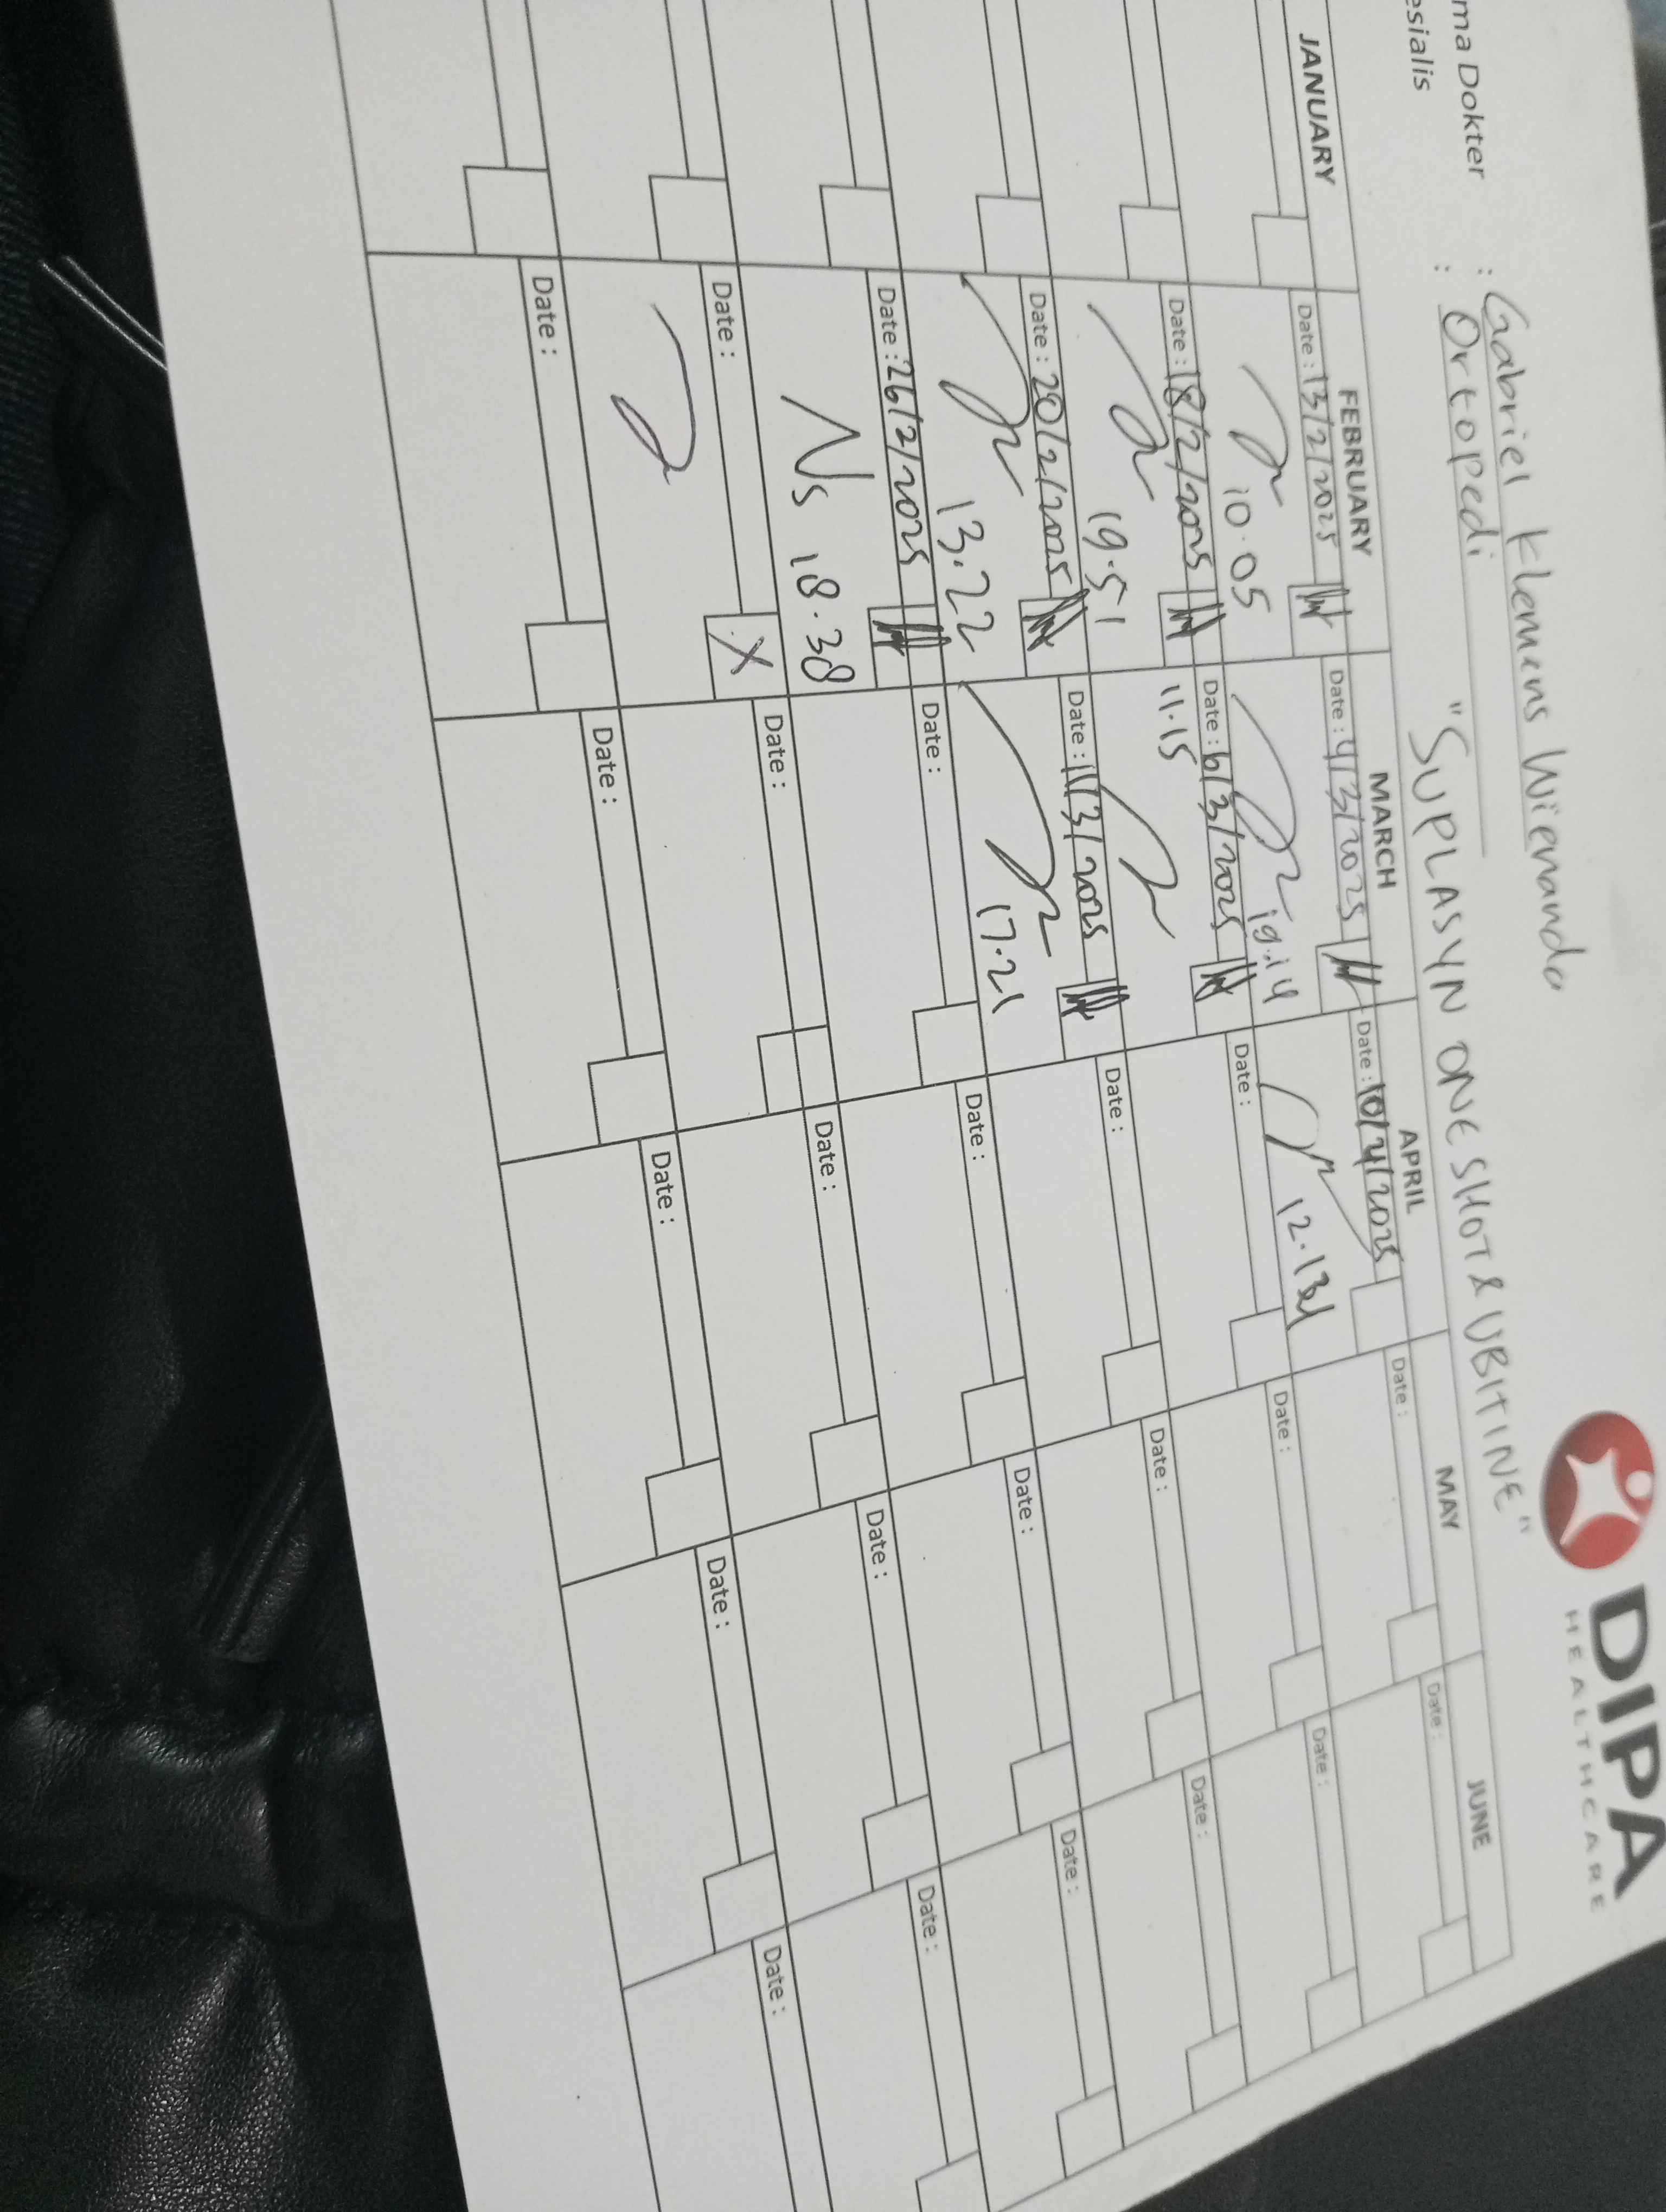 ma Dokter : Gabriel Klemens Wienando
esialis : Ortopedi
"SUPLASYN ONE SHOT & UBITINE"
DIPA
HEALTHCARE
JANUARY FEBRUARY MARCH APRIL MAY JUNE
Date : 13/2/2025 Date : 4/3/2025 Date : 10/4/2025 Date : Date :
10.05 19.14
Date : 18/2/2025 Date : 6/3/2025 Date : Date : Date :
19.51 11.15
Date : 20/2/2025 Date : 11/3/2025 Date : Date : Date :
13.22 17.21
Date : 26/2/2025 Date : Date : Date : Date :
Ns 18.38
Date : X Date : Date : Date : Date :
Date : Date : Date : Date : Date :